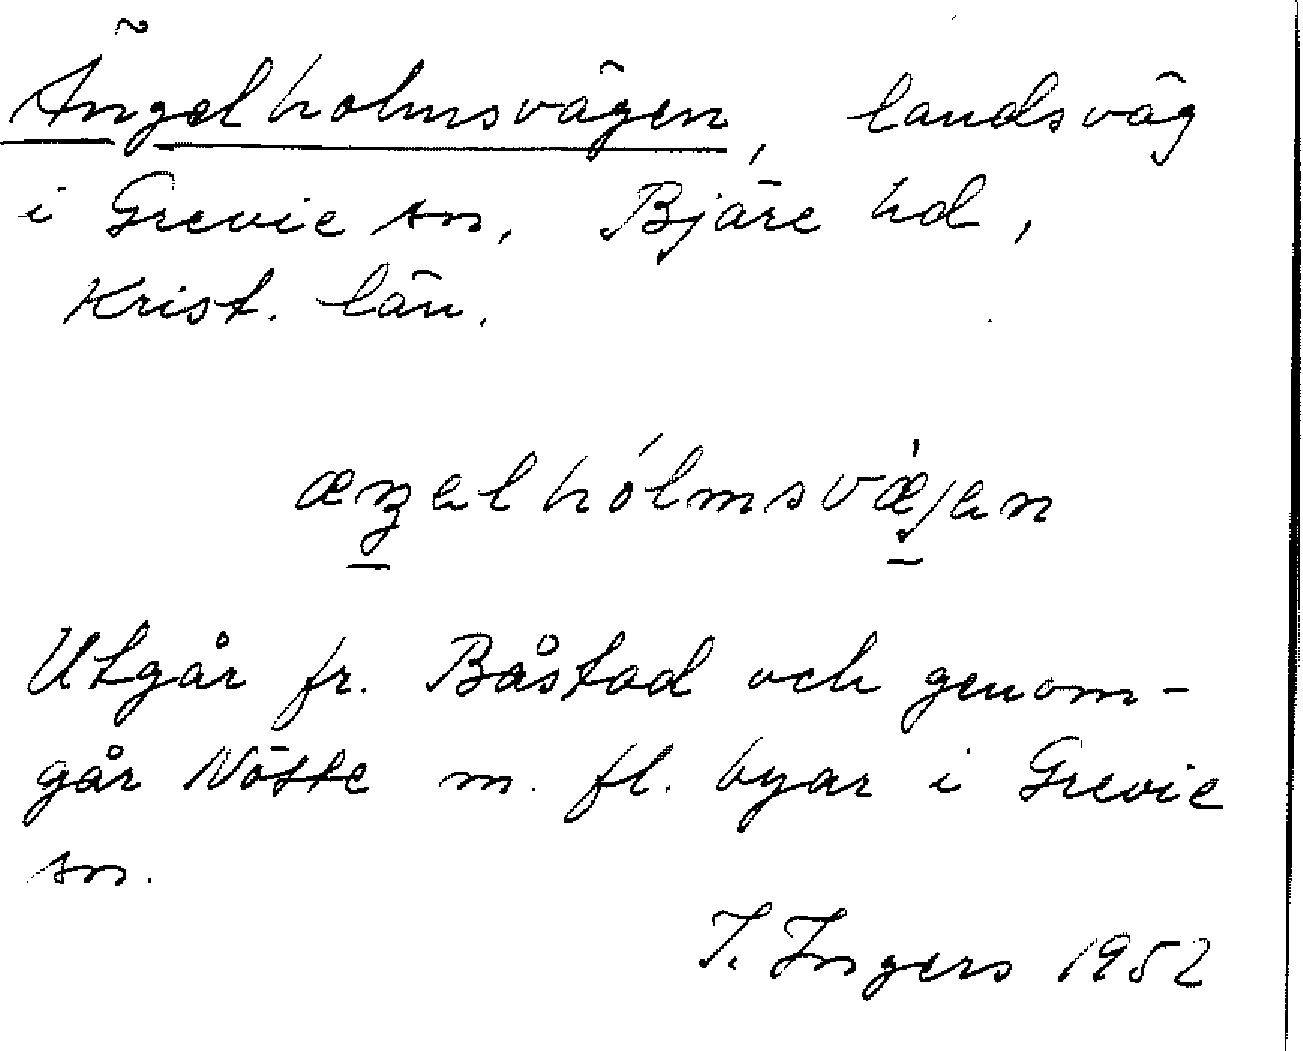 Ängelholmsvägen, landsväg
i Grevie sn, Bjäre hd,
Krist. län.
æŋəlhólmsvæ̀jən
Utgår fr. Båstad och genom-
går Nötte m. fl. byar i Grevie
sn.
I. Ingers 1952